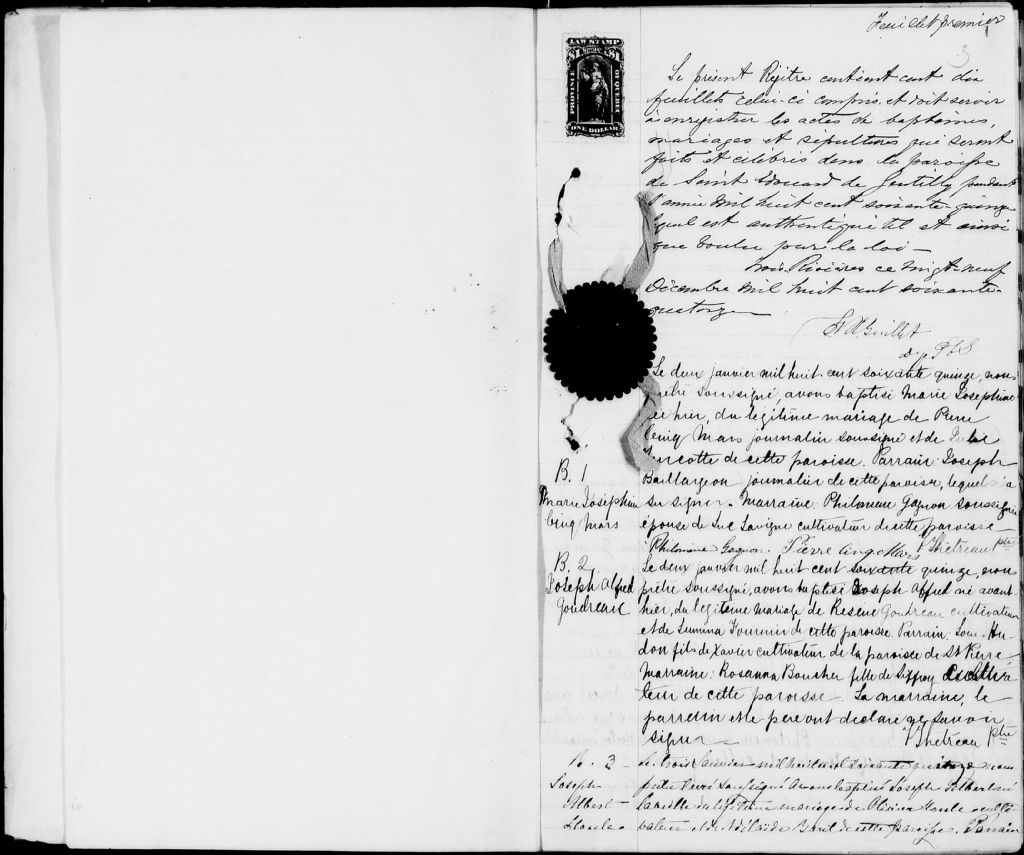 Feuillet premier
3
LAW STAMP
$1 $1
PROVINCE OF QUEBEC
ONE DOLLAR
Le présent Régitre contient cent dix
feuillets celui-ci compris, et doit servir
à enregistrer les actes de baptêmes,
mariages et sépultures qui seront
faits et célébrés dans la paroisse
de Saint Edouard de Gentilly pendant
l'année mil huit cent soixante-quinze
lequel est authentiqué tel et ainsi
que voulu par la loi —
Trois-Rivières ce vingt-neuf
Décembre mil huit cent soixante-
quatorze
Guillet
D. P.
Le deux janvier mil huit cent soixante quinze, nous
prêtre soussigné, avons baptisé Marie Josephine
née hier, du légitime mariage de Pierre
Cinq Mars journalier soussigné et de Julie
Turcotte de cette paroisse. Parrain Joseph
Baillargeon journalier de cette paroisse, lequel n'a
su signer. Marraine: Philomene Gagnon soussignée
épouse de Luc Lavigne cultivateur de cette paroisse —
Philomène Gagnon. Pierre Cinq Mars V. Thétreau ptre
B. 1
Marie Joséphine
Cinq Mars
Le deux janvier mil huit cent soixante quinze, nous
prêtre soussigné, avons baptisé Joseph Alfred né avant
hier, du légitime mariage de Goudreau cultivateur
et de Lumina Fournier de cette paroisse. Parrain: Louis Hu-
don fils de Xavier cultivateur de la paroisse de St Pierre
Marraine: Rosanna Boucher fille de Siffroy cultiva-
teur de cette paroisse — La marraine, le
parrain et le père ont déclaré ne savoir
signer — V. Thétreau Ptre
B. 2
Joseph Alfred
Goudreau
B. 3
Joseph
Albert
Houle
Le trois Janvier mil huit cent soixante quinze nous
prêtre curé soussigné avons baptisé Joseph Albert né
la veille du légitime mariage de Olivier Houle culti
vateur et de Adélaïde de cette paroisse. Parrain